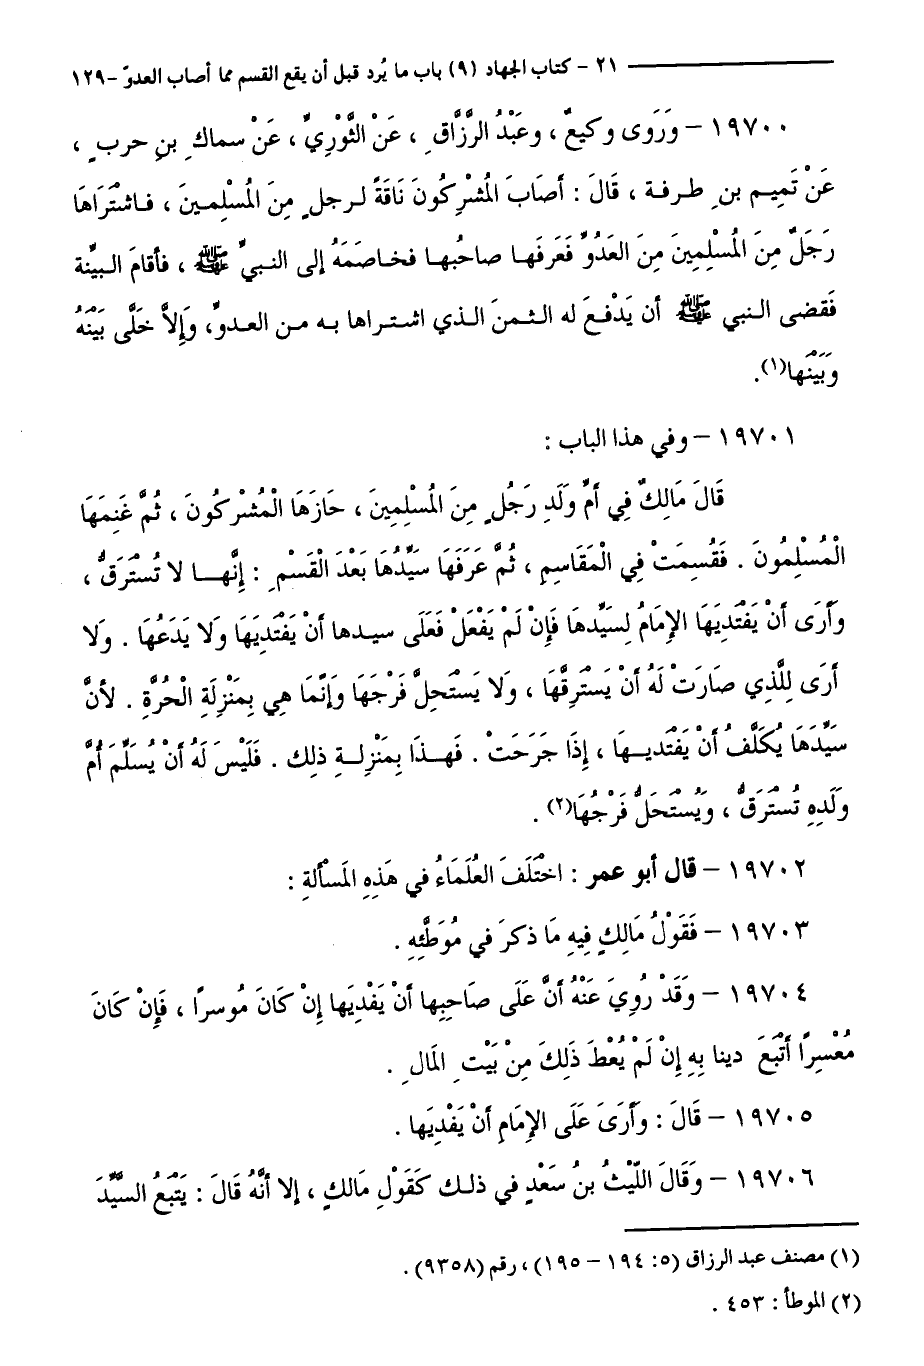 ٢١ - كتاب الجهاد (٩) باب ما يُرد قبل أن يقع القسم مما أصاب العدوّ -١٢٩
١٩٧٠٠ – وَرَوى وكيعٌ ، وعَبْدُ الرَّزَّاقِ ، عَنْ الثَّوْرِيِّ ، عَنْ سماكِ بنِ حربٍ ،
عَنْ تَمِيمِ بنِ طرفة ، قَالَ : أصَابَ المُشْرِكُونَ نَاقَةً لرجلٍ مِنَ المُسْلِمينَ ، فاشْتَرَاهَا
رَجَلٌ مِنَ المُسْلِمِينَ مِنَ العَدُوِّ فَعَرَفَها صاحبُها فخاصَمَهُ إلى النبيِّ ﷺ ، فأقامَ البيِّنة
فَقضى النبي ﷺ أن يَدْفعَ له الثمنَ الذي اشتراها به من العدوِّ، وَإِلاَّ خَلَّى بَيْنَهُ
وَبَيْنَها(١).
١٩٧٠١ – وفي هذا الباب :
قَالَ مَالِكٌ فِي أمِّ وَلَدِ رَجُلٍ مِنَ المُسْلِمِينَ ، حَازَهَا الْمُشْرِكُونَ ، ثُمَّ غَنِمَهَا
الْمُسْلِمُونَ . فَقُسِمَتْ فِي الْمَقَاسِمِ ، ثُمَّ عَرَفَهَا سَيِّدُهَا بَعْدَ الْقَسْمِ : إِنَّهــا لا تُسْتَرَقُّ ،
وَأَرَى أنْ يَفْتَدِيَهَا الإِمَامُ لِسَيِّدِهَا فَإِنْ لَمْ يَفْعَلْ فَعَلَى سيدها أنْ يَفْتَدِيَهَا وَلا يَدَعُهَا . وَلا
أرَى لِلَّذِي صَارَتْ لَهُ أنْ يَسْتَرِقَّهَا ، وَلا يَسْتَحِلَّ فَرْجَهَا وَإِنَّمَا هِي بِمَنْزِلَةِ الْحُرَّةِ . لأنَّ
سَيِّدَهَا يُكَلَّفُ أنْ يَفْتَديـهَا ، إِذَا جَرَحَتْ . فَهـذَا بِمَنْزِلـةِ ذلِك . فَلَيْسَ لَهُ أنْ يُسَلِّمَ أُمَّ
وَلَدِهِ تُسْتَرَقُّ ، وَيُسْتَحَلُّ فَرْجُهَا(٢) .
١٩٧٠٢ – قال أبو عمر : اخْتَلَفَ العُلَمَاءُ في هَذِهِ المَسْألةِ :
١٩٧٠٣ – فَقَوْلُ مَالِكٍ فِيهِ مَا ذكرَ في مُوَطَّئِهِ .
١٩٧٠٤ – وَقَدْ رُوِيَ عَنْهُ أنَّ عَلَى صَاحِبِها أنْ يَفْدِيَها إنْ كَانَ مُوسراً ، فَإِنْ كَانَ
مُعْسِراً أتْبَعَ دينا بِهِ إنْ لَمْ يُعْطَ ذَلِكَ مِنْ بَيْتِ المَالِ .
١٩٧٠٥ – قَالَ : وَأَرَىَ عَلَى الإِمَامِ أنْ يَفْدِيَها .
١٩٧٠٦ – وَقَالَ اللَّيْثُ بنُ سَعْدٍ في ذلـك كَقَوْلِ مَالكٍ ، إلا أنَّهُ قَالَ : يَتْبَعُ السَّيِّدَ
(١) مصنف عبد الرزاق (٥: ١٩٤ – ١٩٥) ، رقم (٩٣٥٨) .
(٢) الموطأ : ٤٥٣ .